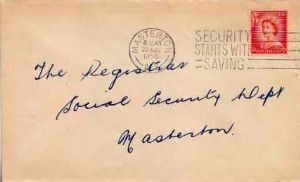 MASTERTON
SECURITY
STARTS WITH
SAVING
The Registrar
Social Security Dept
Masterton.